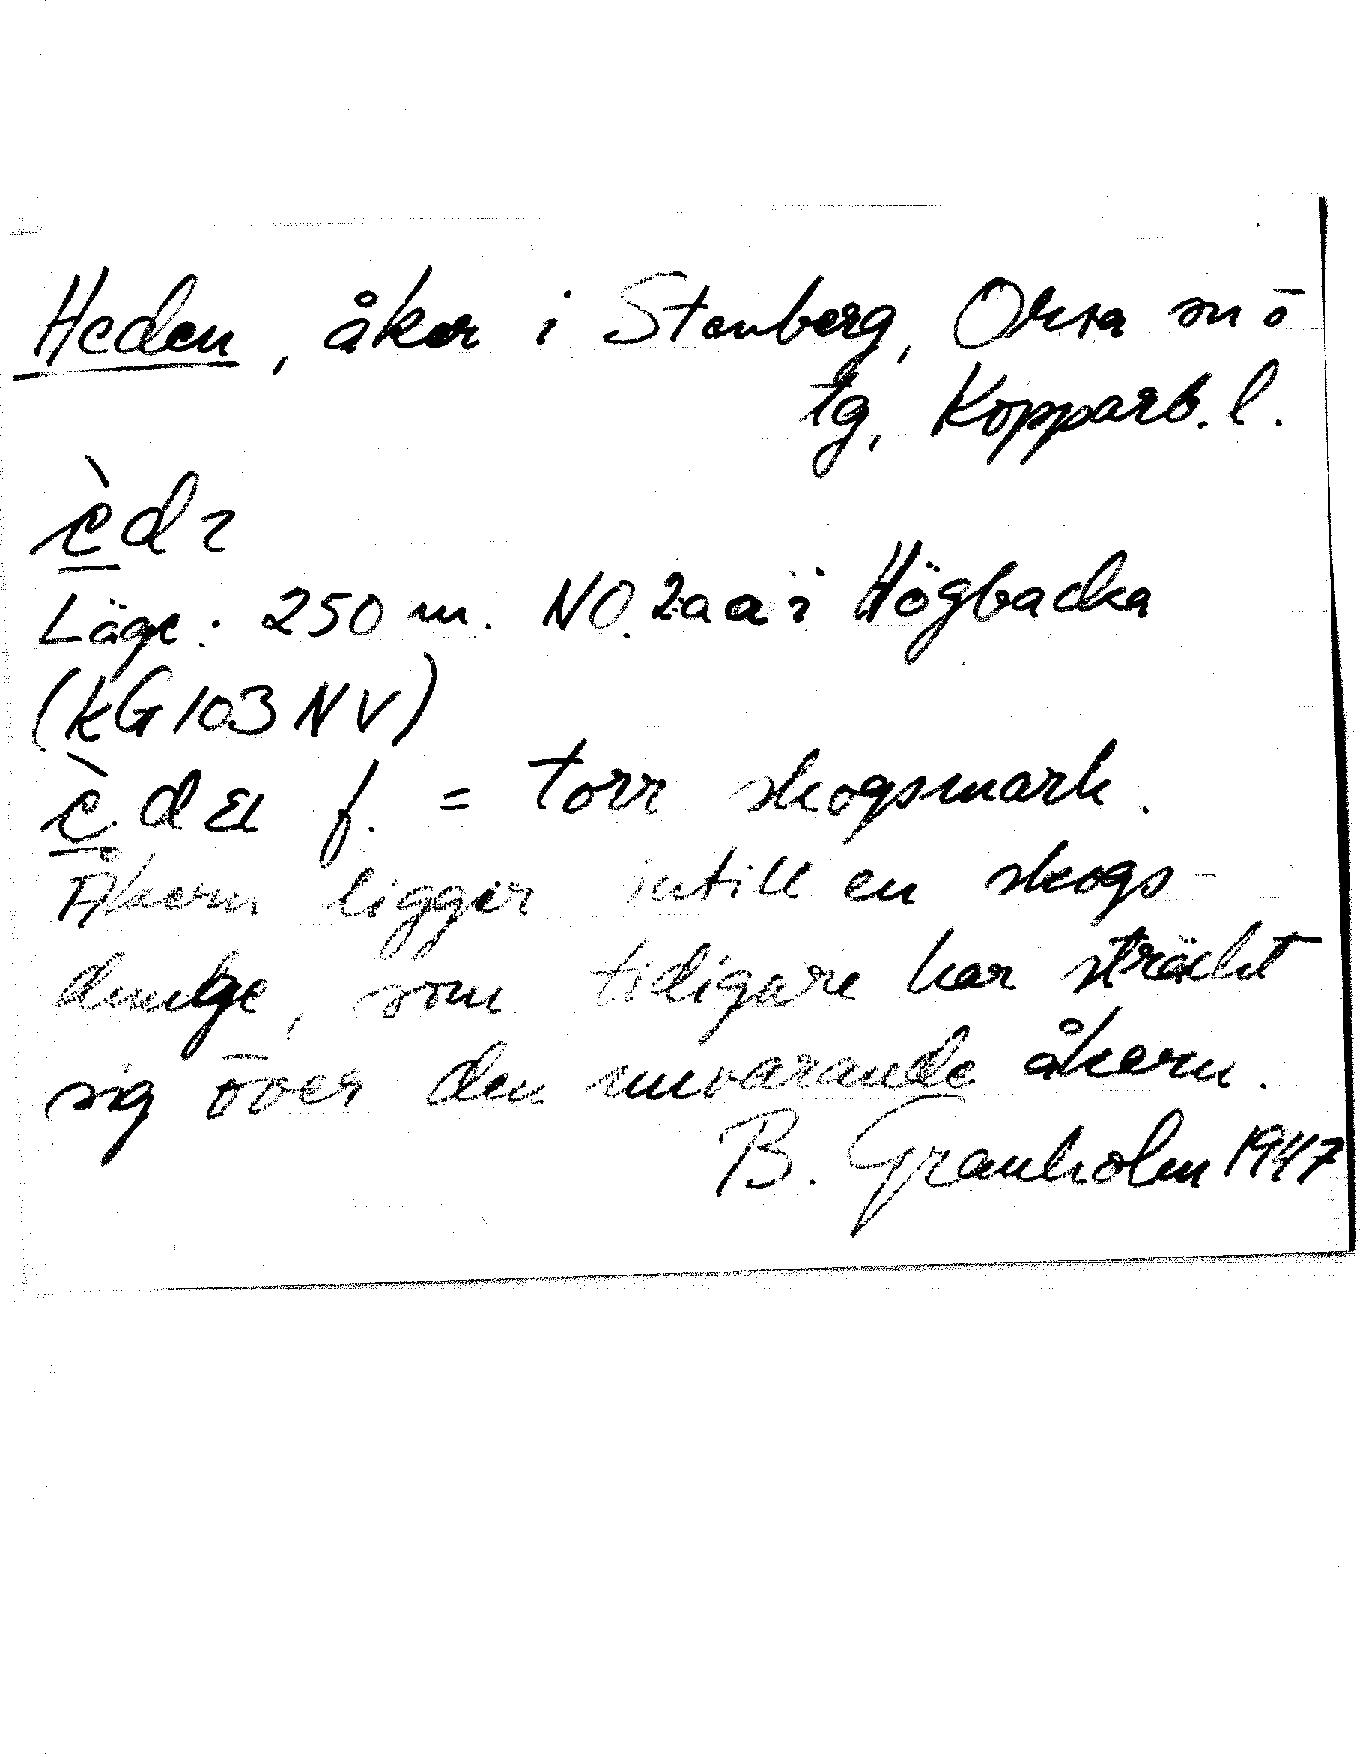 Heden, åker i Stenberg, Orsa sn ö
tg, Kopparb. l.
Läge: 250 m. NO. 2aa i Högbacka
(kG103NV)
f. = torr skogsmark.
Åkern ligger intill en skogs-
dunge, som tidigare har sträckt
sig över den nuvarande åkern.
B. Granholm 1947